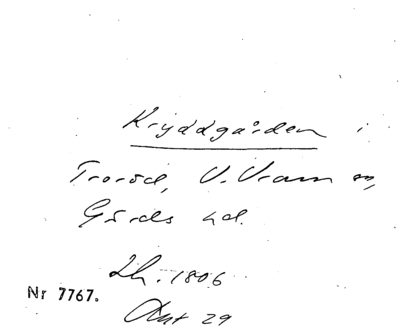 Kryddgården i
Troröd, V. Vram sn,
Gärds hd.
Lh. 1806
Nr 7767.
Akt 29